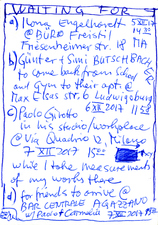 WAITING FOR
a) Ilona Engelhardt @ 14 30
@ BÜRO Freistil
Friesenheimer str. 18 MA
b) Günter + Simi BUTSCHBACH
to come back from School
and Gym to their apt. @
Max Elsas str. 6 Ludwigsburg
6 XII 2017 11 58
c) Paolo Girotto
in his studio/workplace
@ Via Quadrio 2, Milano
7 XII 2017 15
while I take measurements
of my works there
d) for friends to arrive @
BAR CENTRALE AGAZZANO
w/ Paolo + Carmela 7 XII 2017